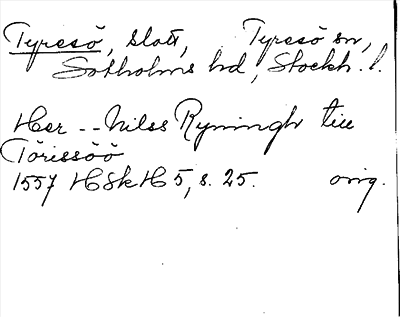 Tyresö, slott, Tyresö sn,
Sotholms hd, Stockh. l.
Her -- Nilss Ryningh till
Törissöö
1557 HSkH 5, s. 25. orig.